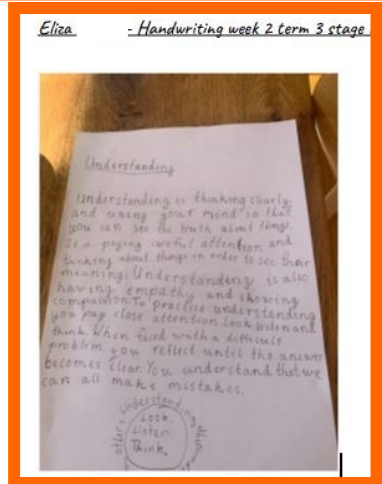 Eliza - Handwriting week 2 term 3 stage
Understanding
Understanding is thinking clearly
and using your mind so that
you can see the truth about things.
It is paying careful attention and
thinking about things in order to see their
meaning. Understanding is also
having empathy and showing
compassion. To practice understanding
you pay close attention look listen and
think. When faced with a difficult
problem, you reflect until the answer
becomes clear. You understand that we
can all make mistakes.
Understand
others
Look.
Listen.
Think.